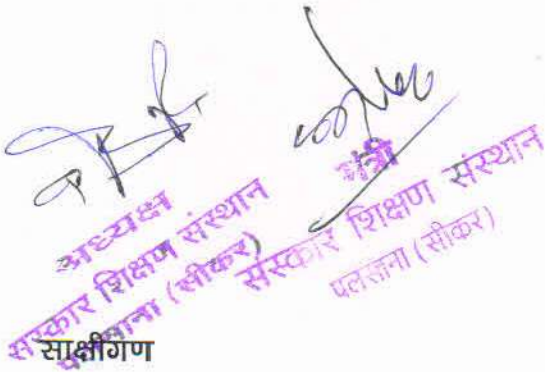 अध्यक्ष
संस्कार शिक्षण संस्थान
पलसाना (सीकर)
मंत्री
संस्कार शिक्षण संस्थान
पलसाना (सीकर)
साक्षीगण